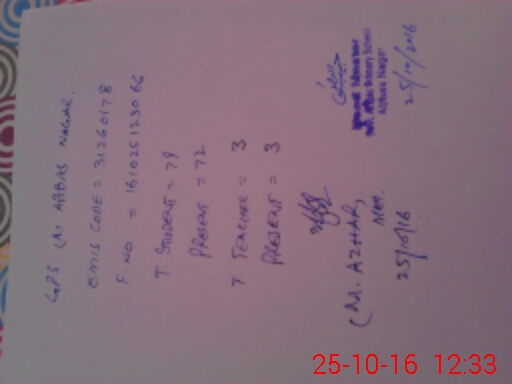 GPS (A) ABBAS NAGAR.
EMIS CODE = 31260178
F. NO = 161025123066
T STUDENT = 79
PRESENT = 72
T. TEACHER = 3
PRESENT = 3
(M. AZHAR,
MEA.
25/10/16
Head Master
Govt. Primary School
Abbas Nagar
25/10/2016
25-10-16 12:33